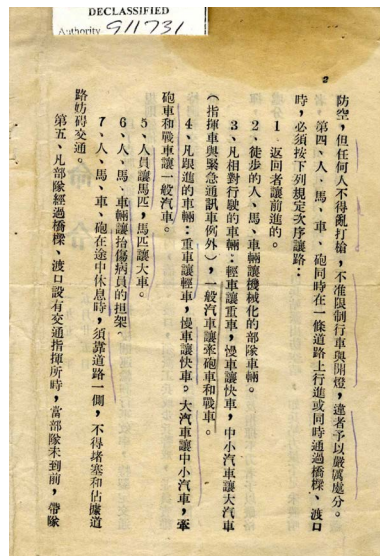 DECLASSIFIED
Authority 911731
2
防空，但任何人不得亂打槍，不准限制行車與開燈，違者予以嚴厲處分。
第四、人、馬、車、砲同時在一條道路上行進或同時通過橋樑、渡口
時，必須按下列規定次序讓路：
1 返回者讓前進的。
2、徒步的人、馬、車輛讓機械化的部隊車輛。
3、凡相對行駛的車輛：輕車讓重車，慢車讓快車，中小汽車讓大汽車
（指揮車與緊急通訊車例外），一般汽車讓牽砲車和戰車。
4、凡跟進的車輛：重車讓輕車，慢車讓快車。大汽車讓中小汽車，牽
砲車和戰車讓一般汽車。
5、人員讓馬匹，馬匹讓大車。
6、人、馬、車輛讓抬傷病員的担架。
7、人、馬、車、砲在途中休息時，須靠道路一側，不得堵塞和佔據道
路妨碍交通。
第五、凡部隊經過橋樑、渡口設有交通指揮所時，當部隊未到前，帶隊